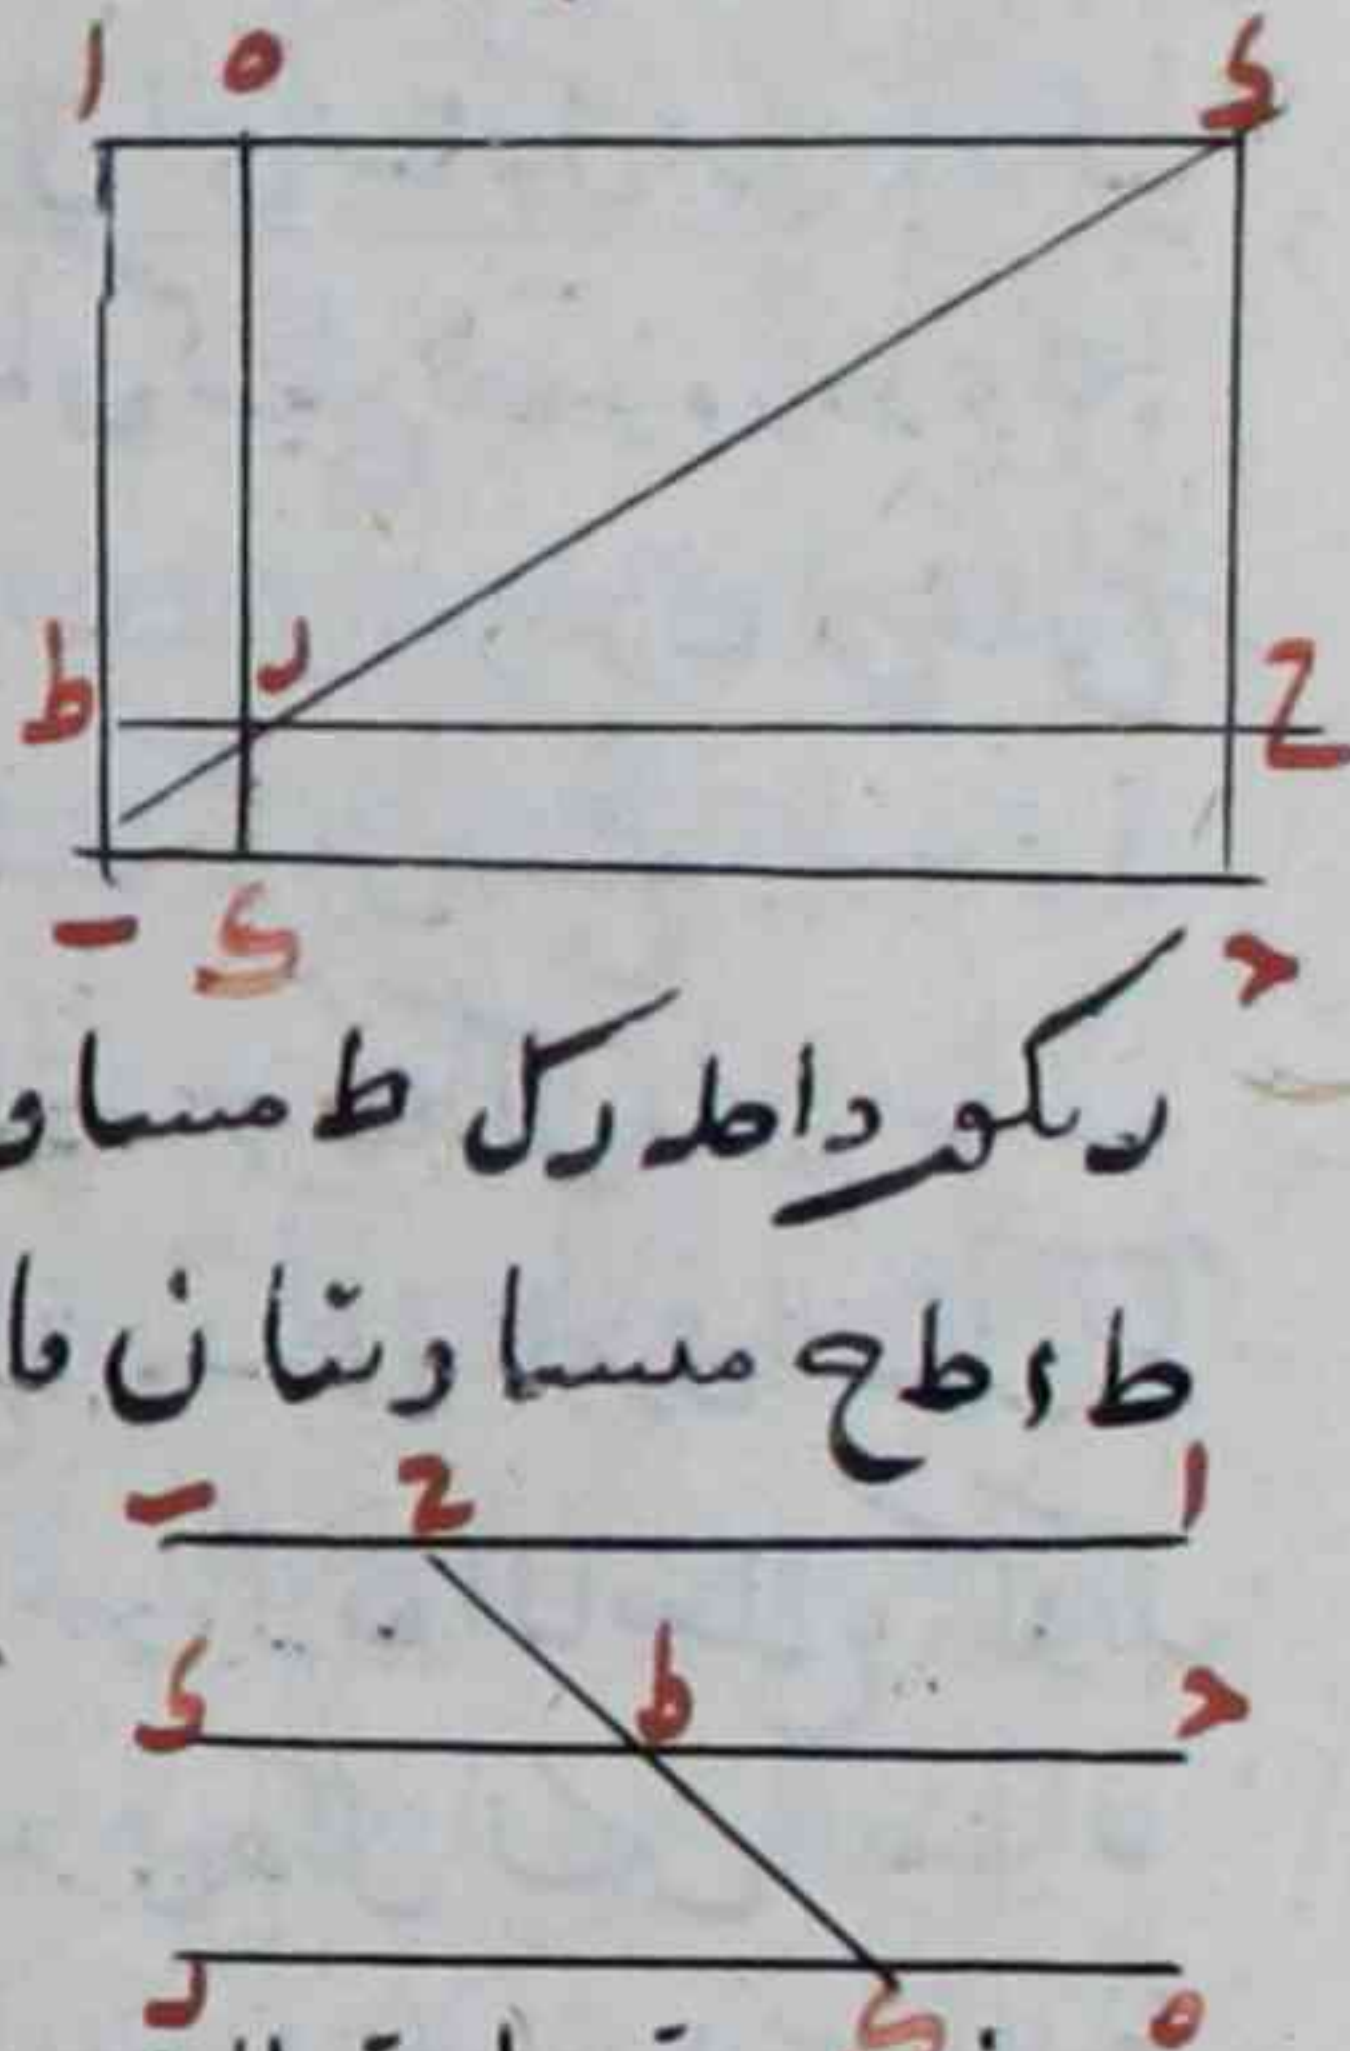 ا ه د
ط ر ح
ب ى ح
ويكو داحله ركل ط مساو
ط ء ط ح متساويتان فا
ب ح ا
د ط ح
ر ى ه